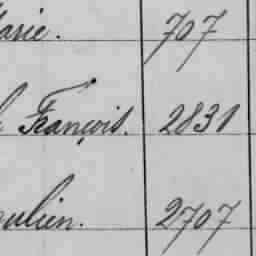 Marie. 707
François. 2831
Julien. 2707